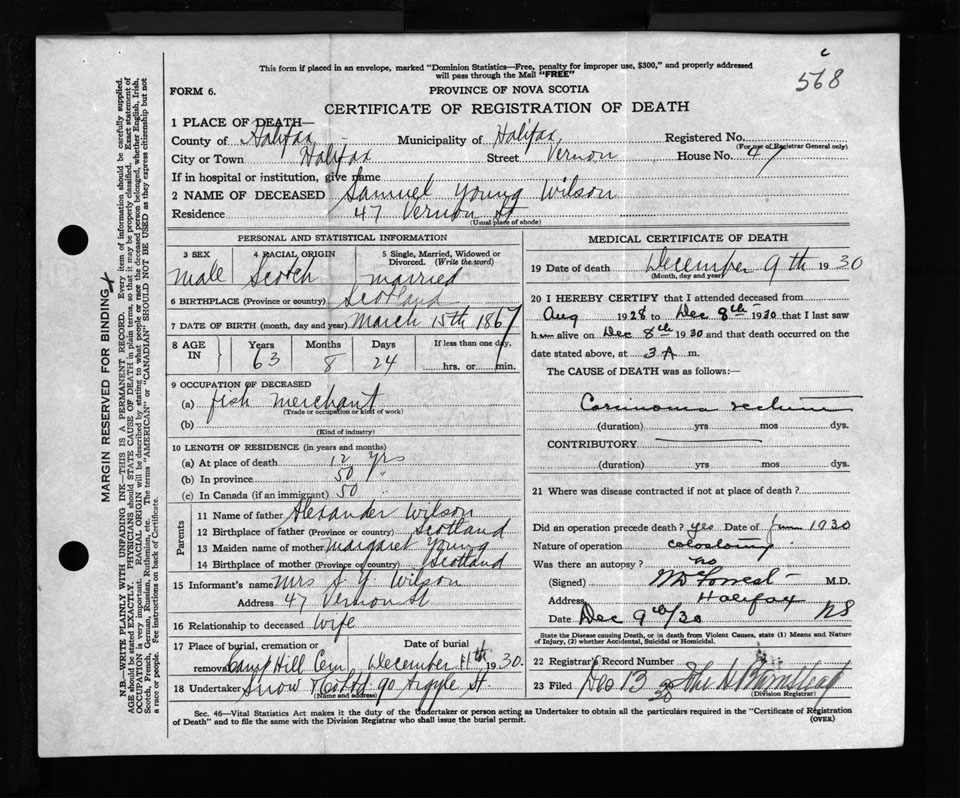 c
568
This form if placed in an envelope, marked "Dominion Statistics—Free, penalty for improper use, $300," and properly addressed
will pass through the Mail "FREE"
FORM 6.
PROVINCE OF NOVA SCOTIA
CERTIFICATE OF REGISTRATION OF DEATH
1 PLACE OF DEATH—
County of Halifax Municipality of Halifax Registered No.
(For use of Registrar General only)
City or Town Halifax Street Vernon House No. 47
If in hospital or institution, give name
2 NAME OF DECEASED Samuel Young Wilson
Residence 47 Vernon St
(Usual place of abode)
PERSONAL AND STATISTICAL INFORMATION
3 SEX 4 RACIAL ORIGIN 5 Single, Married, Widowed or Divorced. (Write the word)
Male Scotch married
6 BIRTHPLACE (Province or country) Scotland
7 DATE OF BIRTH (month, day and year) March 15th 1867
8 AGE IN Years Months Days If less than one day,
63 8 24 hrs. or min.
9 OCCUPATION OF DECEASED
(a) fish merchant
(Trade or occupation or kind of work)
(b)
(Kind of industry)
10 LENGTH OF RESIDENCE (in years and months)
(a) At place of death 12 yrs
(b) In province 50 "
(c) In Canada (if an immigrant) 50 "
Parents
11 Name of father Alexander Wilson
12 Birthplace of father (Province or country) Scotland
13 Maiden name of mother Margaret Young
14 Birthplace of mother (Province or country) Scotland
15 Informant's name Mrs S. Y. Wilson
Address 47 Vernon St
16 Relationship to deceased Wife
17 Place of burial, cremation or removal Date of burial
Camp Hill Cem December 11th 1930.
18 Undertaker Snow 90 Argyle St
(Name and address)
MEDICAL CERTIFICATE OF DEATH
19 Date of death December 9th 1930
(Month, day and year)
20 I HEREBY CERTIFY that I attended deceased from
Aug 1928 to Dec 8th 1930 that I last saw
him alive on Dec 8th 1930 and that death occurred on
date stated above, at 3 A m.
The CAUSE of DEATH was as follows:—
Carcinoma rectum
(duration) yrs mos dys.
CONTRIBUTORY
(duration) yrs mos dys.
21 Where was disease contracted if not at place of death?
Did an operation precede death? yes Date of June 1930
Nature of operation colostomy
Was there an autopsy? no
(Signed) M.D.
Address Halifax
Date Dec 9th/30 NS
State the Disease causing Death, or in death from Violent Causes, state (1) Means and Nature
of Injury, (2) whether Accidental, Suicidal or Homicidal.
22 Registrar's Record Number
23 Filed Dec 13 30
(Division Registrar)
Sec. 46—Vital Statistics Act makes it the duty of the Undertaker or person acting as Undertaker to obtain all the particulars required in the "Certificate of Registration
of Death" and to file the same with the Division Registrar who shall issue the burial permit.
(OVER)
MARGIN RESERVED FOR BINDING
N.B.—WRITE PLAINLY WITH UNFADING INK—THIS IS A PERMANENT RECORD. Every item of information should be carefully supplied.
AGE should be stated EXACTLY. PHYSICIANS should STATE CAUSE OF DEATH in plain terms, so that it may be properly classified. Exact statement of
OCCUPATION is very important. RACIAL ORIGIN will be described by stating to what people or race the deceased person belonged, whether English, Irish,
Scotch, French, German, Russian, Ruthenian, etc. The terms "AMERICAN" or "CANADIAN" SHOULD NOT BE USED as they express citizenship but not
a race or people. See instructions on back of Certificate.